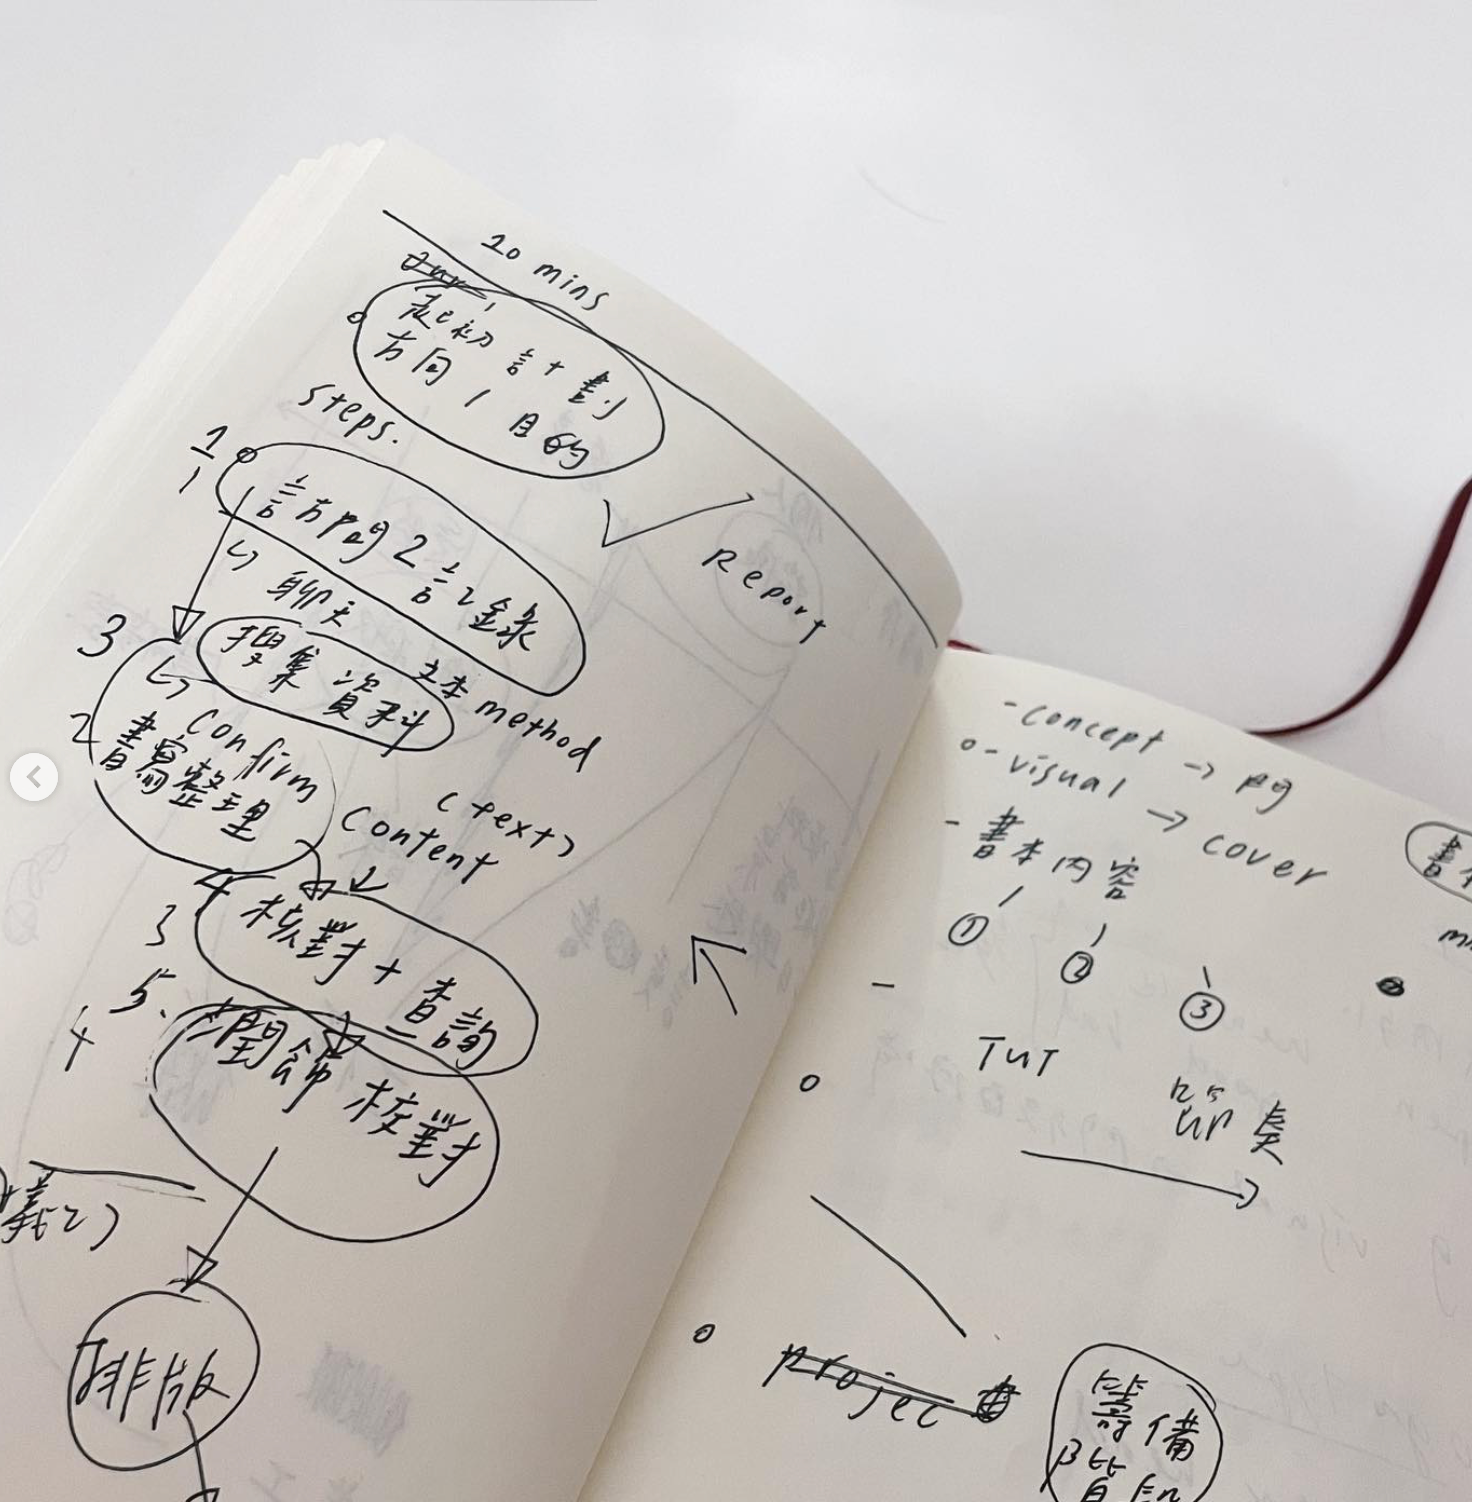 10 mins
起初計劃
方向/目的
steps.
1
訪問2記錄
聊天
Report
3
搜集資料
文本 method
2
confirm
書寫整理
(text)
content
4
3
核對+查詢
5.
4
潤飾 核對
排版
-concept → 門
-visual → cover
-書本内容
① ② ③
TuT
節奏
projec
籌備
階段